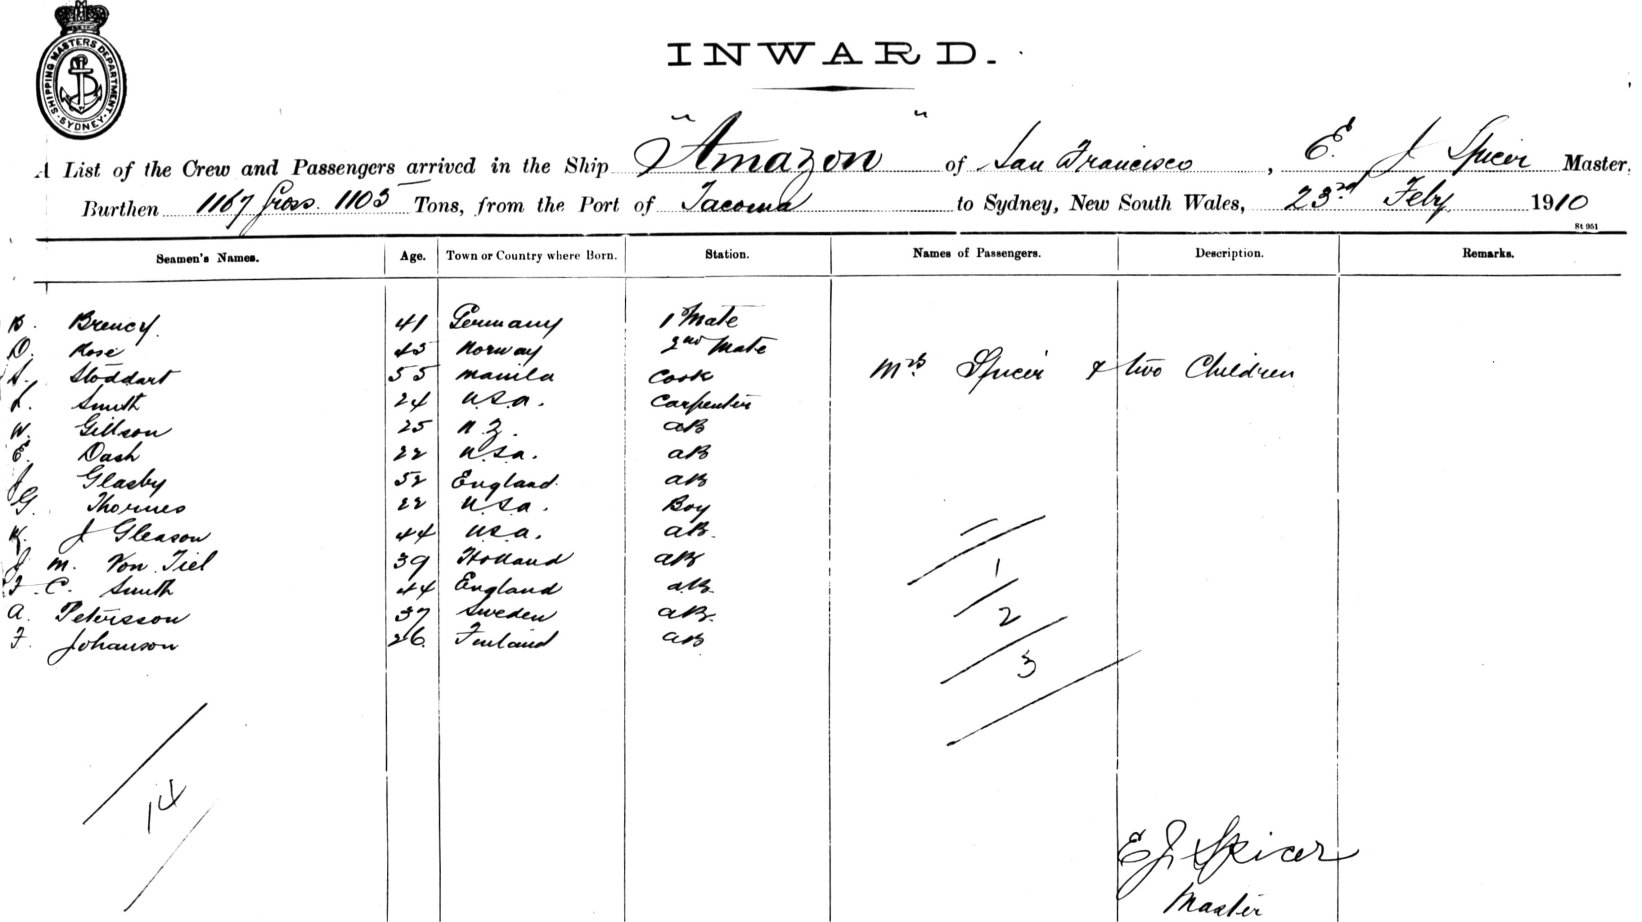 SHIPPING MASTERS DEPARTMENT
SYDNEY
INWARD.
A List of the Crew and Passengers arrived in the Ship "Amazon" of San Francisco, E. J Spicer Master,
Burthen 1167 gross. 1105 Tons, from the Port of Tacoma to Sydney, New South Wales, 23rd Feby 1910
St 951
Seamen's Names. Age. Town or Country where Born. Station. Names of Passengers. Description. Remarks.
B. 41 Germany 1 Mate
O. Rose 45 Norway 2nd Mate
Stoddart 55 Manila Cook Mrs. Spicer & two Children
L. Smith 24 U.S.a. Carpenter
W. Gillson 25 N.Z. aB
E. Dash 22 U.S.a. aB
J Glasby 52 England. aB
G. Thornes 22 U.S.a. Boy
K. J Gleason 44 U.S.a. aB.
J. M. Von Tiel 39 Holland aB
F. C. Smith 44 England aB.
a. Petersson 37 Sweden aB.
F. Johanson 26. Finland aB
1
2
3
14
E J Spicer
Master